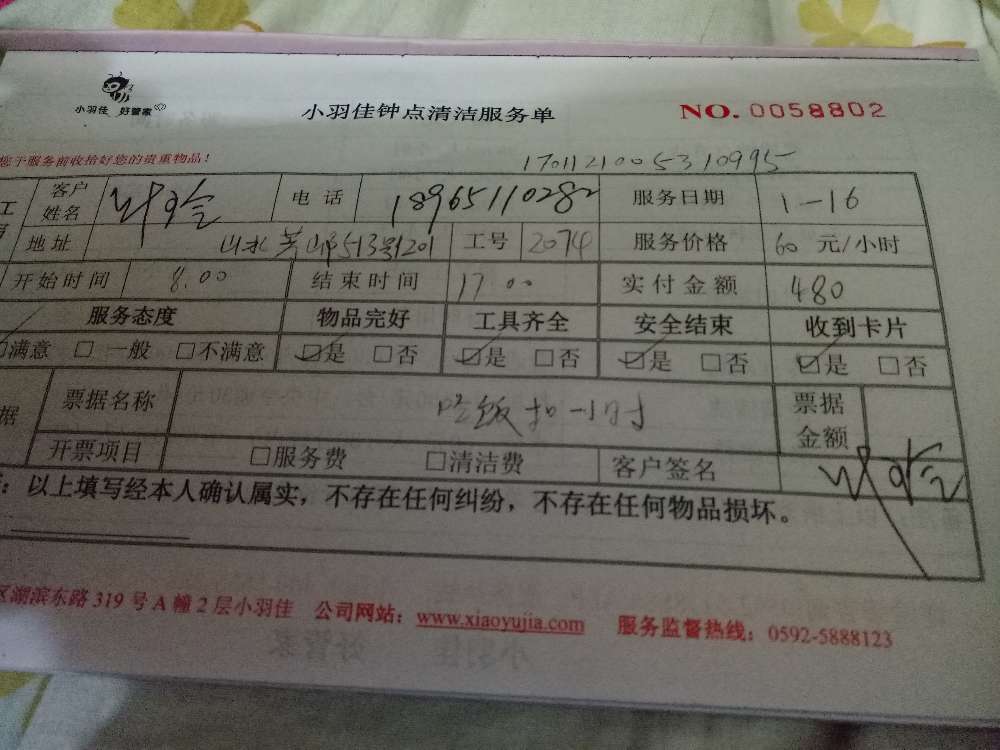 小羽佳 好管家
小羽佳钟点清洁服务单 NO. 0058802
您于服务前收拾好您的贵重物品！ 1701121005310995
客户姓名 电话 18965110282 服务日期 1-16
地址 山水芳 513号1201 工号 2074 服务价格 60 元/小时
开始时间 8.00 结束时间 17.00 实付金额 480
服务态度 物品完好 工具齐全 安全结束 收到卡片
满意 □ 一般 □不满意 ☑是 □否 ☑是 □否 ☑是 □否 ☑是 □否
据 票据名称 吃饭扣一小时 票据金额
开票项目 □服务费 □清洁费 客户签名
：以上填写经本人确认属实，不存在任何纠纷，不存在任何物品损坏。
区湖滨东路 319 号 A 幢 2 层小羽佳 公司网站：www.xiaoyujia.com 服务监督热线：0592-5888123